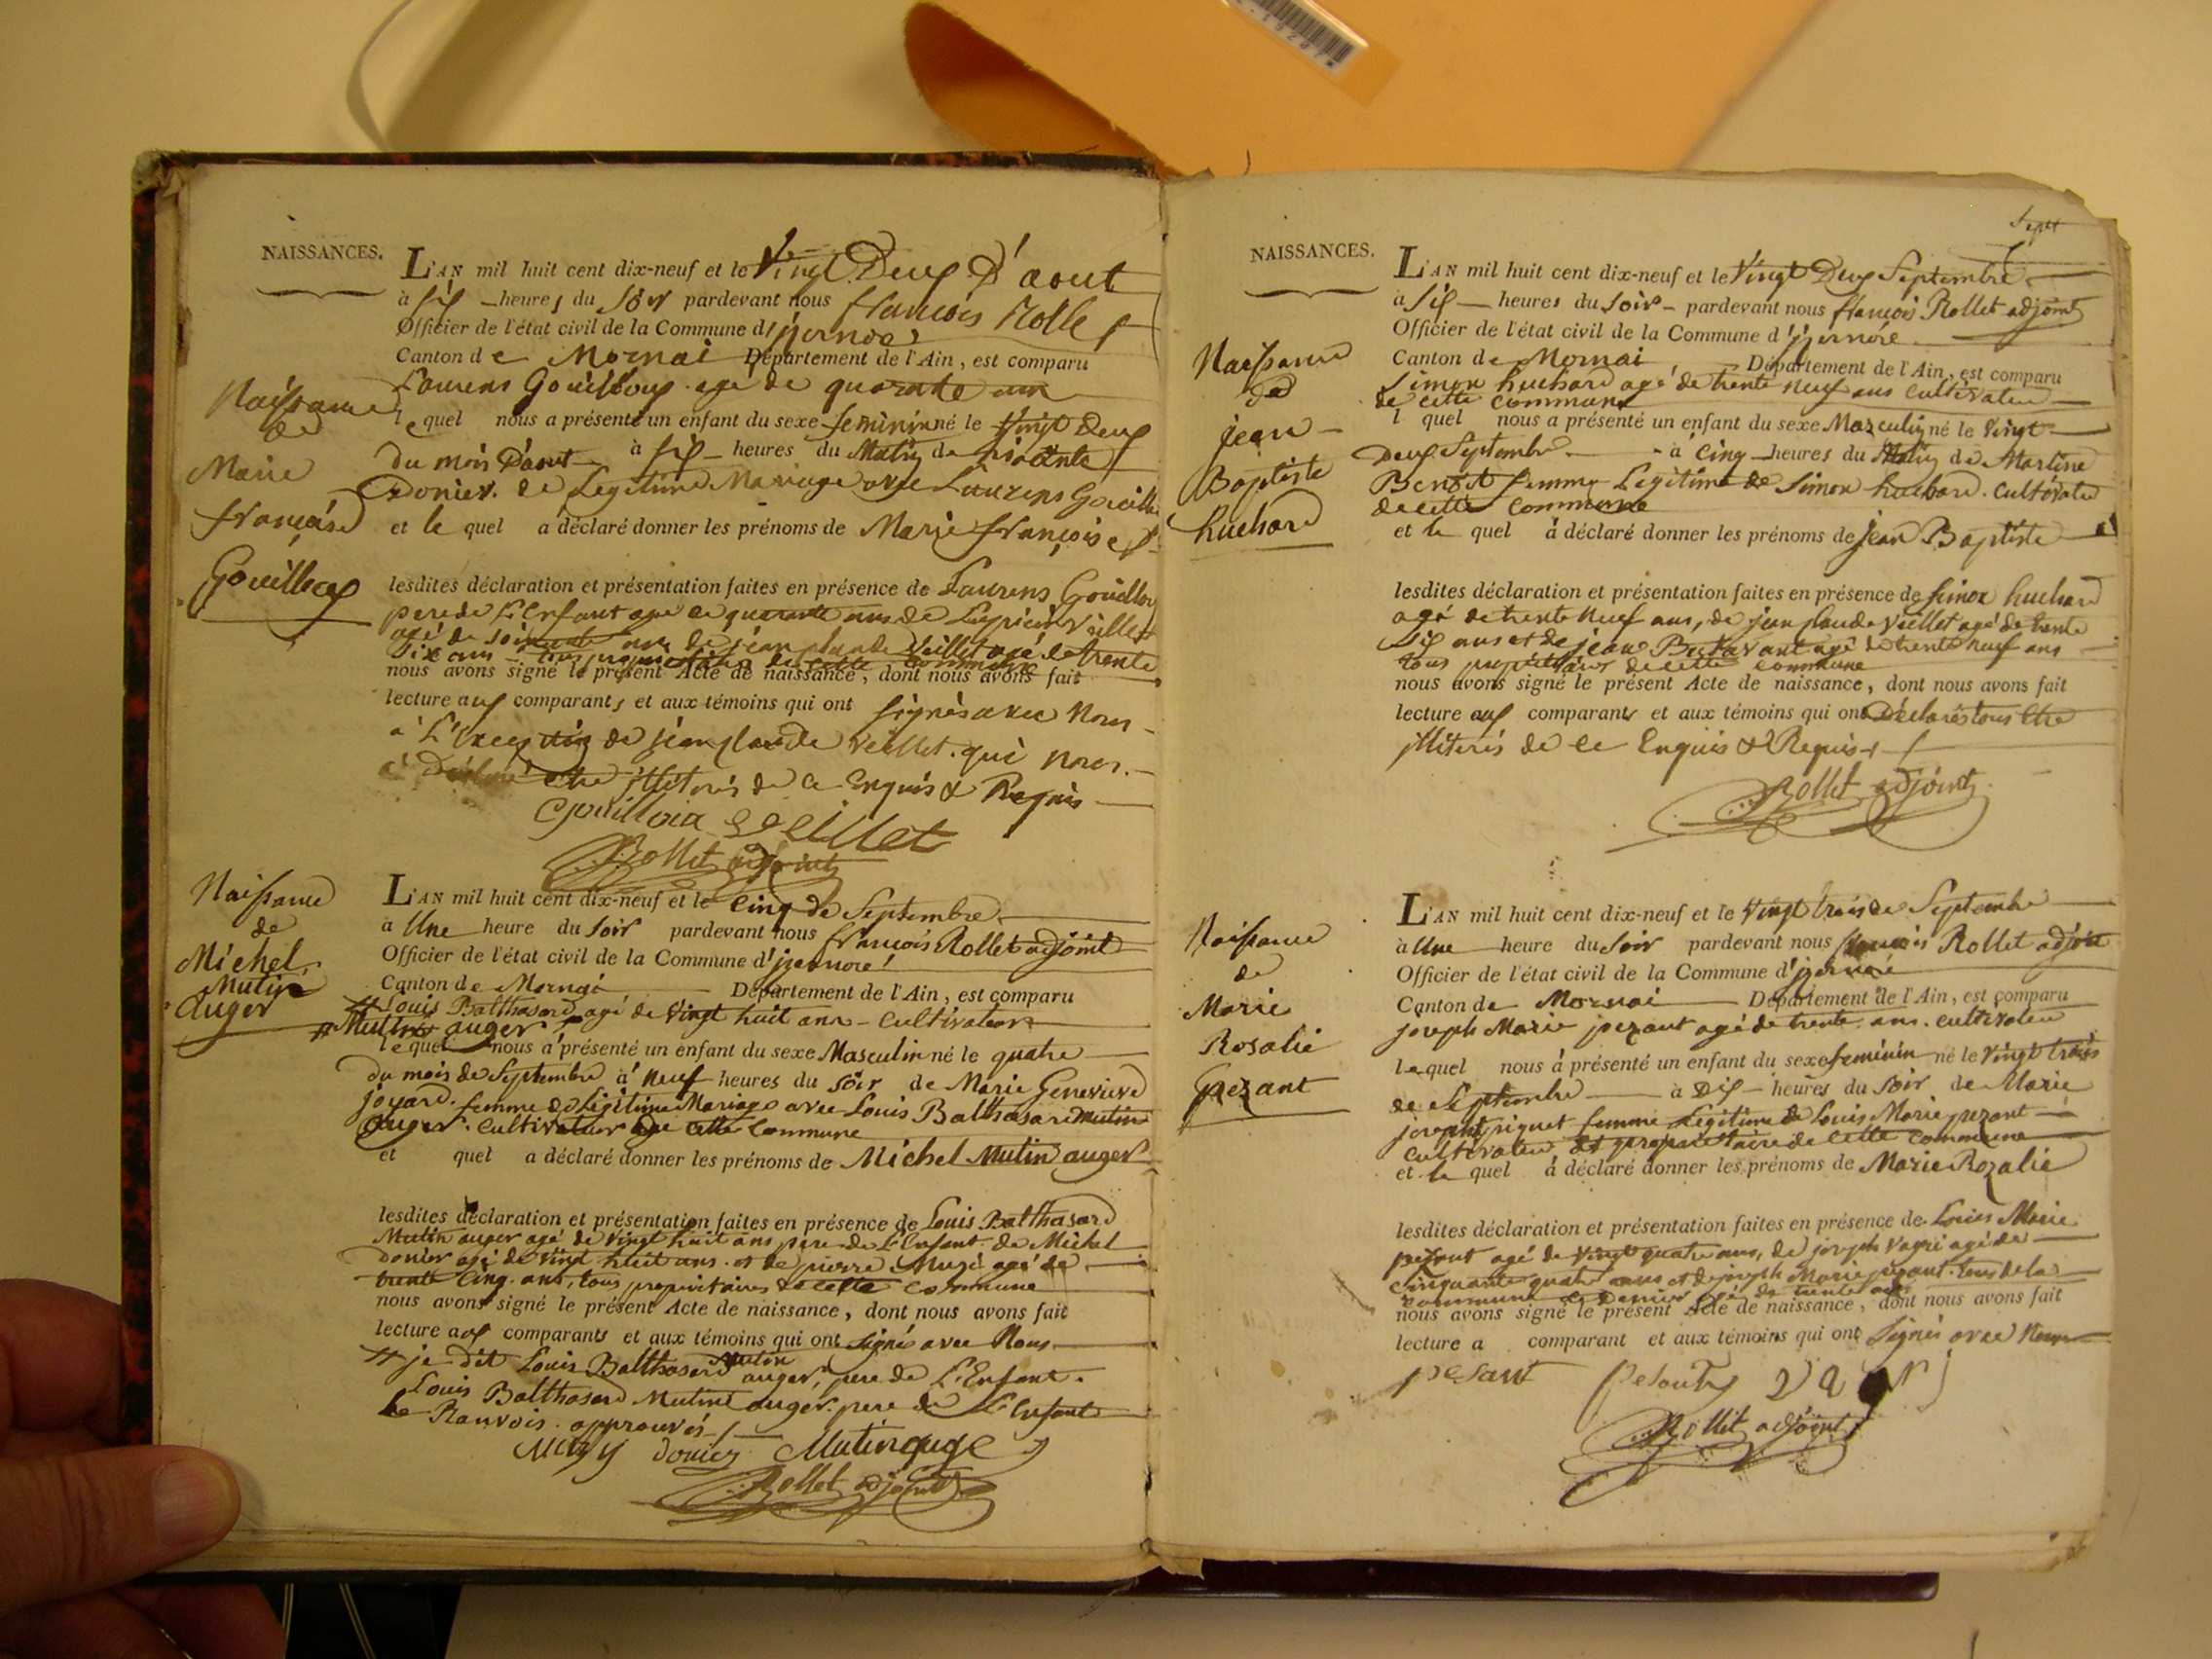 NAISSANCES.
L'AN mil huit cent dix-neuf et le Vingt Deux D'aout
à six heures du Soir pardevant nous francois Rolle
Officier de l'état civil de la Commune d'jzernore
Canton de Mornai Département de l'Ain, est comparu
Laurens Gouilloux agé de quarante ans
lequel nous a présenté un enfant du sexe feminin né le Vingt Deux
du mois D'aout à six heures du Matin de
Donier. de Legitime Mariage avec Laurens Gouilloux
et le quel a déclaré donner les prénoms de Marie françoise
Naissance
de
Marie
françoise
Gouilloux
lesdites déclaration et présentation faites en présence de Laurens Gouilloux
pere de L'Enfant agé de quarante ans de Veillet
agé de soixante ans de jean plaude Veillet agé de trente
six ans tous proprietaires de cette commune
nous avons signé le présent Acte de naissance, dont nous avons fait
lecture aux comparants et aux témoins qui ont signés avec Nous
à L'Exception de jean plaude Veillet. qui nous
à Déclaré être illiterés de ce Enquis & Requis
Gouilloux Veillet
Rollet adjoint
Naissance
de
Michel
Mutin
Auger
L'AN mil huit cent dix-neuf et le Cinq de Septembre
à Une heure du Soir pardevant nous francois Rollet adjoint
Officier de l'état civil de la Commune d'jzernore
Canton de Mornai Département de l'Ain, est comparu
# Louis Balthasard agé de Vingt huit ans - Cultivateur
# Mutin auger
lequel nous a présenté un enfant du sexe Masculin né le quatre
du mois de Septembre à Neuf heures du soir de Marie Genevieve
joyard. femme de Légitime Mariage avec Louis Balthasard Mutin
Auger. Cultivateur de cette Commune
et quel a déclaré donner les prénoms de Michel Mutin auger
lesdites déclaration et présentation faites en présence de Louis Balthasard
Mutin auger agé de Vingt huit ans pere de L'Enfant de Michel
Donier agé de Vingt huit ans et de pierre Muzi agé de
trente Cinq ans, tous proprietaires de cette commune
nous avons signé le présent Acte de naissance, dont nous avons fait
lecture aux comparants et aux témoins qui ont signés avec Nous
# je dit Louis Balthasard Mutin auger, pere de L'Enfant.
Louis Balthasard Mutin auger pere de L'Enfant
Le Ranvois approuvés
Muzy Donier Mutin auge
Rollet adjoint
Sept
NAISSANCES.
L'AN mil huit cent dix-neuf et le Vingt Deux Septembre
à six heures du Soir pardevant nous francois Rollet adjoint
Officier de l'état civil de la Commune d'jzernore
Canton de Mornai Département de l'Ain, est comparu
Simon huchard agé de trente neuf ans cultivateur
de cette commune
l quel nous a présenté un enfant du sexe Masculin né le Vingt
Deux Septembre à Cinq heures du Matin de Martine
Benoit femme Legitime de Simon huchard. Cultivateur
de cette Commune
et le quel à déclaré donner les prénoms de jean Baptiste
Naissance
de
jean
Baptiste
huchard
lesdites déclaration et présentation faites en présence de Simon huchard
agé de trente Neuf ans, de jean plaude Veillet agé de trente
Six ans et de jean agé de trente neuf ans
tous proprietaires de cette commune
nous avons signé le présent Acte de naissance, dont nous avons fait
lecture aux comparants et aux témoins qui ont Déclarés tous Etre
illiterés de ce Enquis & Requis
Rollet adjoint
Naissance
de
Marie
Rosalie
pezant
L'AN mil huit cent dix-neuf et le Vingt trois de Septembre
à Une heure du Soir pardevant nous francois Rollet adjoint
Officier de l'état civil de la Commune d'jzernore
Canton de Mornai Département de l'Ain, est comparu
joseph Marie pezant agé de trente ans. cultivateur
lequel nous à présenté un enfant du sexe feminin né le Vingt trois
de Septembre à Dix heures du Soir de Marie
femme Legitime de Louis Marie pezant
Cultivateur et proprietaire de cette commune
et le quel à déclaré donner les prénoms de Marie Rozalie
lesdites déclaration et présentation faites en présence de Louis Marie
pezant agé de Vingt quatre ans, de joseph agé de
Cinquante quatre ans et de joseph Marie pezant tous de la
commune ce Dernier agé de trente ans
nous avons signé le présent Acte de naissance, dont nous avons fait
lecture a comparant et aux témoins qui ont Signés avec Nous
pesant
Rollet adjoint